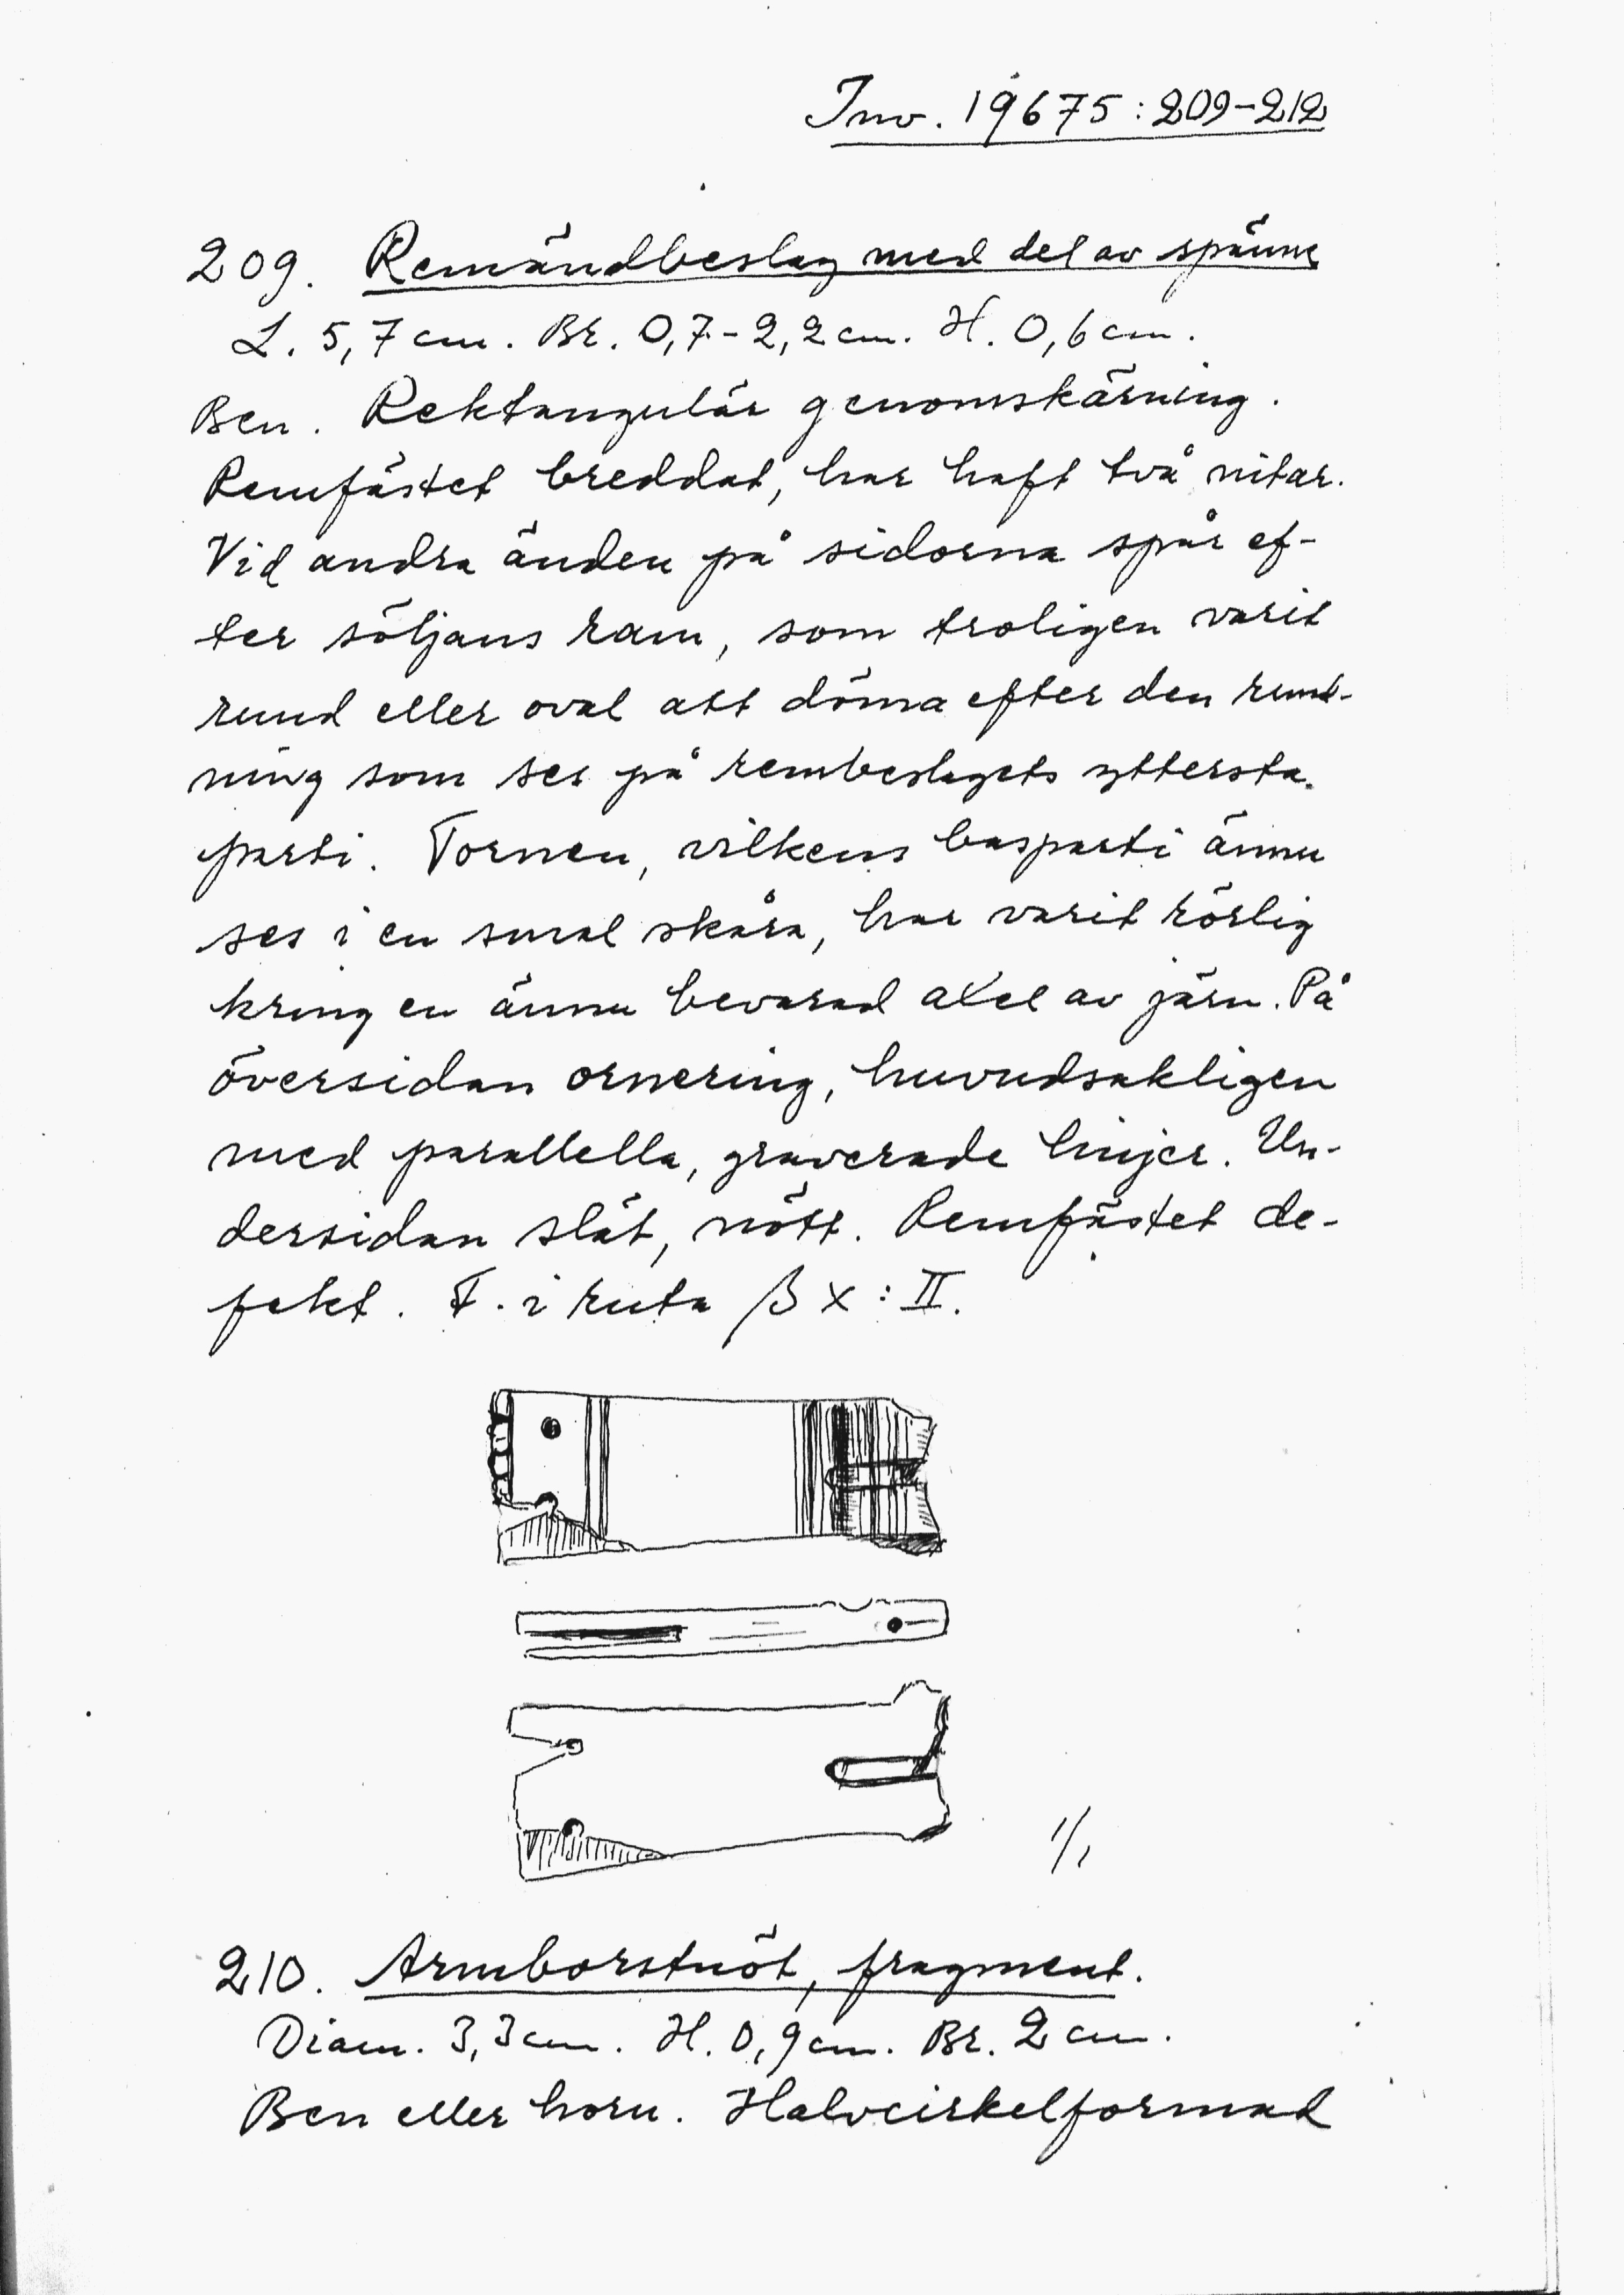 Inv. 19675:209-212
209. Remändbeslag med del av spänne
L. 5,7 cm. Br. 0,7-2,2 cm. H. 0,6 cm.
Ben. Rektangulär genomskärning.
Remfästet breddat, har haft två nitar.
Vid andra änden på sidorna spår ef-
ter söljans ram, som troligen varit
rund eller oval att döma efter den rund-
ning som ses på rembeslagets yttersta
parti. Tornen, vilkens basparti ännu
ses i en smal skåra, har varit rörlig
kring en ännu bevarad axel av järn. På
översidan ornering, huvudsakligen
med parallella, graverade linjer. Un-
dersidan slät, nött. Remfästet de-
fekt. F. i ruta β X:II.
1/1
210. Armborstnöt, fragment.
Diam. 3,3 cm. H. 0,9 cm. Br. 2 cm.
Ben eller horn. Halvcirkelformad